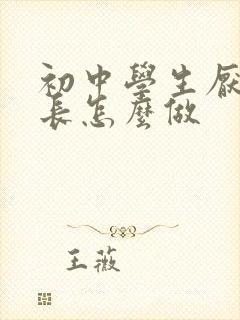 初中學生厭
長怎麼做
王薇